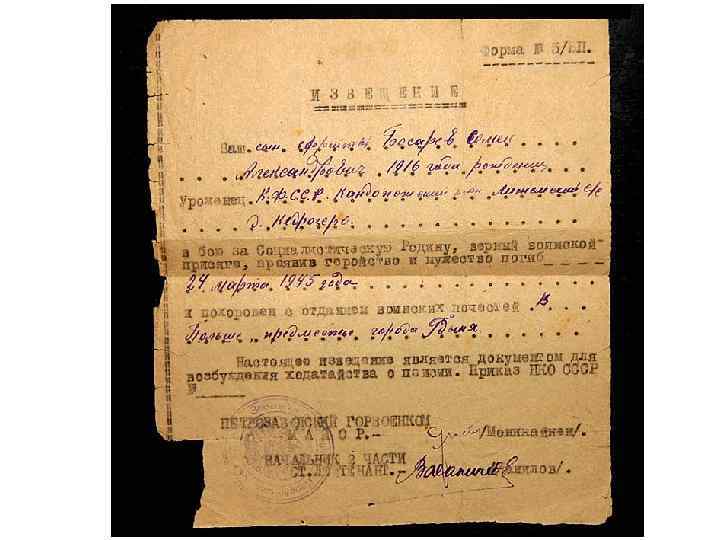 Форма № 5/БП.
ИЗВЕЩЕНИЕ
Ваш сын
Александрович 1916 года рождения
Уроженец К.Ф.ССР. Кондопожский р-он
д. Кедрозеро
в бою за Социалистическую Родину, верный воинской
присяге, проявив геройство и мужество погиб
24 марта 1945 года
и похоронен с отданием воинских почестей в
Польше, предместье города Гдыня
Настоящее извещение является документом для
возбуждения ходатайства о пенсии. Приказ НКО СССР
№
ПЕТРОЗАВОДСКИЙ ГОРВОЕНКОМ
МАЙОР.-
НАЧАЛЬНИК 2 ЧАСТИ
СТ.ЛЕЙТЕНАНТ.-